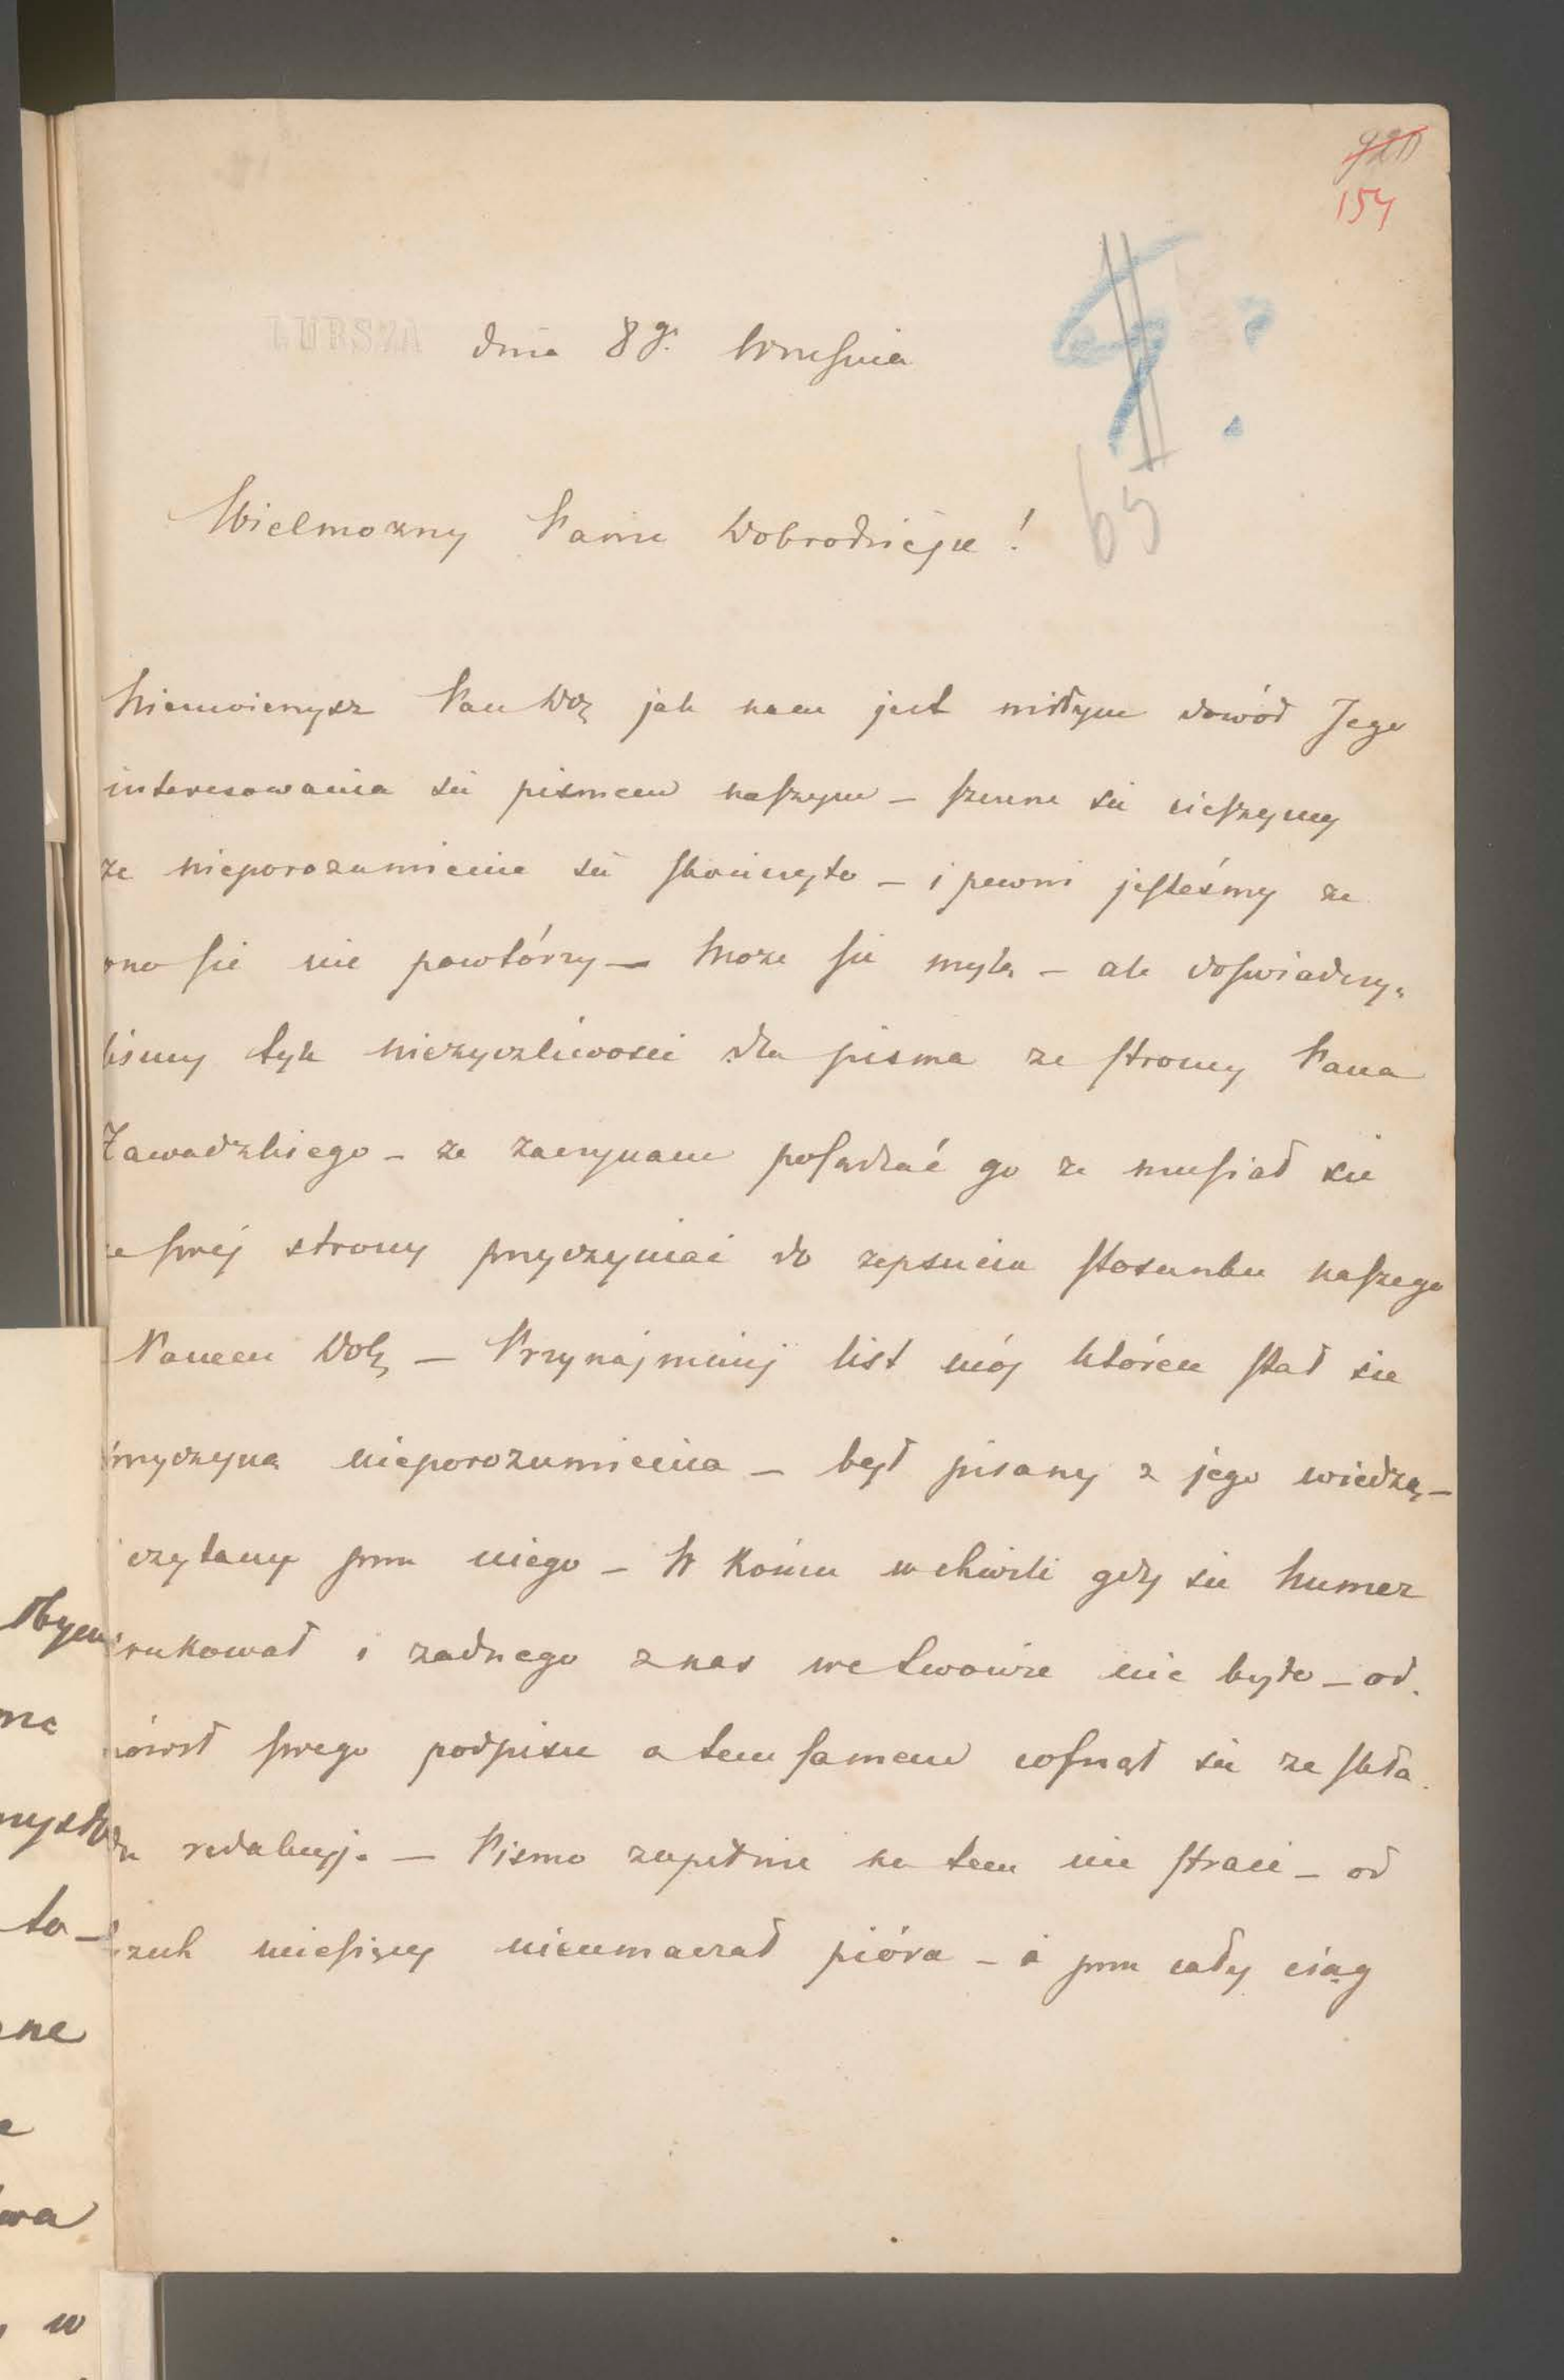 920
154
LUBSZA dnia 8go Września
65
Wielmożny Panie Dobrodzieju!
Nieuwierzysz Pan Dob jak nam jest miłym dowód Jego
interesowania sie pismem naszym – szczerze sie cieszymy
ze nieporozumienie sie skończyło – i pewni jesteśmy ze
ono sie nie powtórzy – Może sie mylę – ale doswiadczy-
liśmy tyle nieżyczliwosci dla pisma ze strony Pana
Zawadzkiego – ze zaczynam posadzać go ze musiał sie
ze swéj strony przyczyniać do zepsucia stosunku naszego
Panem Dob – Przynajmniej list mój którem stał sie
przyczyną nieporozumienia – był pisany z jego wiedzą –
czytany przez niego – W Końcu w chwili gdy sie Numer
drukował i zadnego z nas we Lwowie nie było – od-
mówił swego podpisu a tem samem cofnął sie ze skła-
du redakcyj. – Pismo zupełnie na tem nie straci – od
miesięcy nieumaczał pióra – a przez cały ciąg
Obym
to –
w